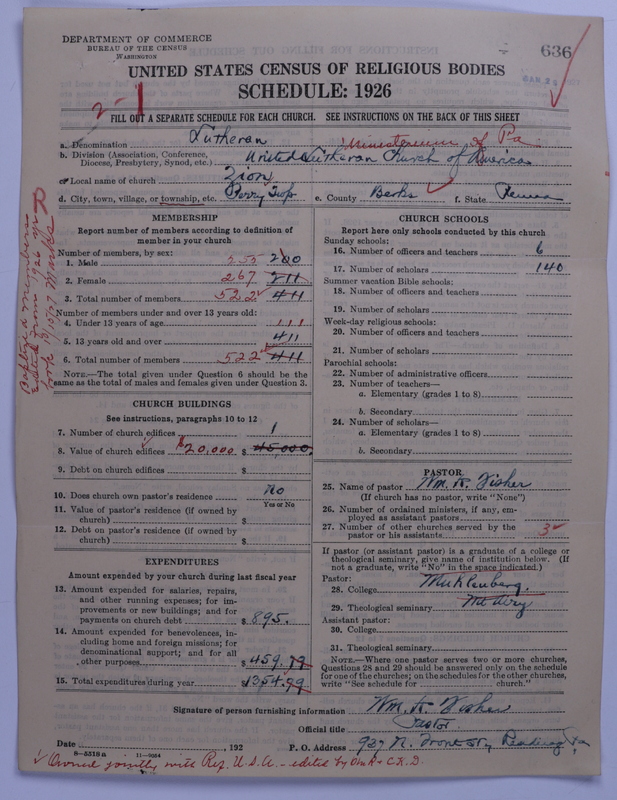 DEPARTMENT OF COMMERCE
BUREAU OF THE CENSUS
WASHINGTON
636
UNITED STATES CENSUS OF RELIGIOUS BODIES
SCHEDULE: 1926
2-1
FILL OUT A SEPARATE SCHEDULE FOR EACH CHURCH. SEE INSTRUCTIONS ON THE BACK OF THIS SHEET
a. Denomination Lutheran Ministerium of Pa
b. Division (Association, Conference, Diocese, Presbytery, Synod, etc.) United Lutheran Church of America
c. Local name of church Zion
d. City, town, village, or township, etc. Perry Twp. e. County Berks f. State Penna
MEMBERSHIP
Report number of members according to definition of
member in your church
Number of members, by sex:
1. Male 255 200
2. Female 267 211
3. Total number of members 522 411
Number of members under and over 13 years old:
4. Under 13 years of age 111
5. 13 years old and over 411
6. Total number of members 522 411
NOTE.—The total given under Question 6 should be the
same as the total of males and females given under Question 3.
Baptized members
Edited from 1926 Yr
book
CHURCH BUILDINGS
See instructions, paragraphs 10 to 12
7. Number of church edifices 1
8. Value of church edifices $20,000 $ 45,000.
9. Debt on church edifices $
10. Does church own pastor's residence No
Yes or No
11. Value of pastor's residence (if owned by
church) $
12. Debt on pastor's residence (if owned by
church) $
EXPENDITURES
Amount expended by your church during last fiscal year
13. Amount expended for salaries, repairs,
and other running expenses; for im-
provements or new buildings; and for
payments on church debt $ 895.
14. Amount expended for benevolences, in-
cluding home and foreign missions; for
denominational support; and for all
other purposes $ 459.99
15. Total expenditures during year $1354.99
CHURCH SCHOOLS
Report here only schools conducted by this church
Sunday schools:
16. Number of officers and teachers 6
17. Number of scholars 140
Summer vacation Bible schools:
18. Number of officers and teachers
19. Number of scholars
Week-day religious schools:
20. Number of officers and teachers
21. Number of scholars
Parochial schools:
22. Number of administrative officers
23. Number of teachers—
a. Elementary (grades 1 to 8)
b. Secondary
24. Number of scholars—
a. Elementary (grades 1 to 8)
b. Secondary
PASTOR
25. Name of pastor Wm. K. Fisher
(If church has no pastor, write "None")
26. Number of ordained ministers, if any, em-
ployed as assistant pastors
27. Number of other churches served by the
pastor or his assistants 3
If pastor (or assistant pastor) is a graduate of a college or
theological seminary, give name of institution below. (If
not a graduate, write "No" in the space indicated.)
Pastor:
28. College Muhlenberg.
29. Theological seminary Mt Airy
Assistant pastor:
30. College
31. Theological seminary
NOTE.—Where one pastor serves two or more churches,
Questions 28 and 29 should be answered only on the schedule
for one of the churches; on the schedules for the other churches,
write "See schedule for church."
Signature of person furnishing information Wm. K. Fisher
Official title Pastor
Date , 192 P. O. Address 937 N. Front St., Reading Pa
8—5518a 11—9034
✓ Owned jointly with Ref. U.S.A. – edited by